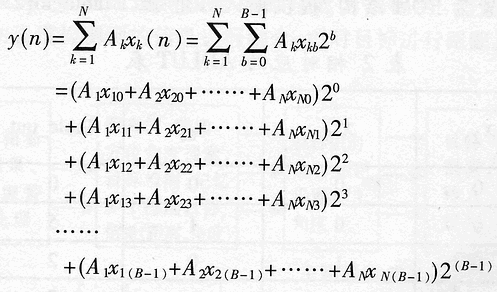 y(n)=∑_{k=1}^{N} A_k x_k(n)=∑_{k=1}^{N} ∑_{b=0}^{B-1} A_k x_{kb} 2^b
=(A_1x_{10}+A_2x_{20}+······+A_Nx_{N0})2^0
+(A_1x_{11}+A_2x_{21}+······+A_Nx_{N1})2^1
+(A_1x_{12}+A_2x_{22}+······+A_Nx_{N2})2^2
+(A_1x_{13}+A_2x_{23}+······+A_Nx_{N3})2^3
······
+(A_1x_{1(B-1)}+A_2x_{2(B-1)}+······+A_Nx_{N(B-1)})2^{(B-1)}